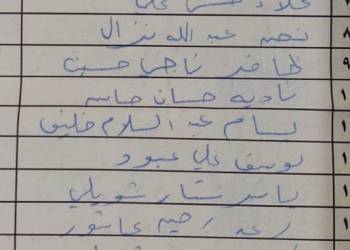 علاء حسن علي
٨ نصير عبد الله نزال
٩ ظافر ناجي حسين
١ نادية حسان جاسم
١ بسام عبد السلام خليف
١ يوسف علي عبود
١ ياسر ستار شويلي
١ رعد رحيم عاشور